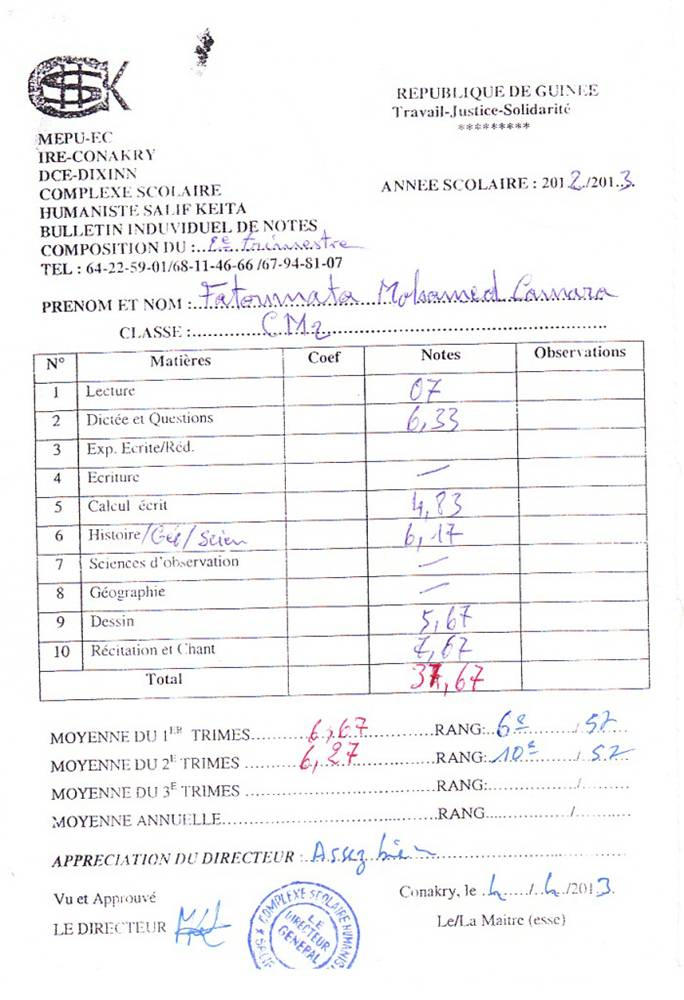 CHSSK
REPUBLIQUE DE GUINEE
Travail-Justice-Solidarité
*********
MEPU-EC
IRE-CONAKRY
DCE-DIXINN
COMPLEXE SCOLAIRE
HUMANISTE SALIF KEITA
BULLETIN INDUVIDUEL DE NOTES
ANNEE SCOLAIRE : 2012/2013.
COMPOSITION DU : 2e trimestre
TEL : 64-22-59-01/68-11-46-66 /67-94-81-07
PRENOM ET NOM : Fatoumata Mohamed Camara
CLASSE : CM2
N° Matières Coef Notes Observations
1 Lecture 07
2 Dictée et Questions 6,33
3 Exp. Ecrite/Réd.
4 Ecriture —
5 Calcul écrit 4,83
6 Histoire/Géé/Scien 6,17
7 Sciences d'observation —
8 Géographie —
9 Dessin 5,67
10 Récitation et Chant 7,67
Total 37,67
MOYENNE DU 1ER TRIMES 6,67 RANG: 6e / 52
MOYENNE DU 2E TRIMES 6,27 RANG: 10e / 52
MOYENNE DU 3E TRIMES RANG: /
MOYENNE ANNUELLE RANG /
APPRECIATION DU DIRECTEUR : Assez bien
Vu et Approuvé
Conakry, le / /2013.
LE DIRECTEUR
Le/La Maitre (esse)
COMPLEXE SCOLAIRE HUMANISTE
LE DIRECTEUR GENERAL